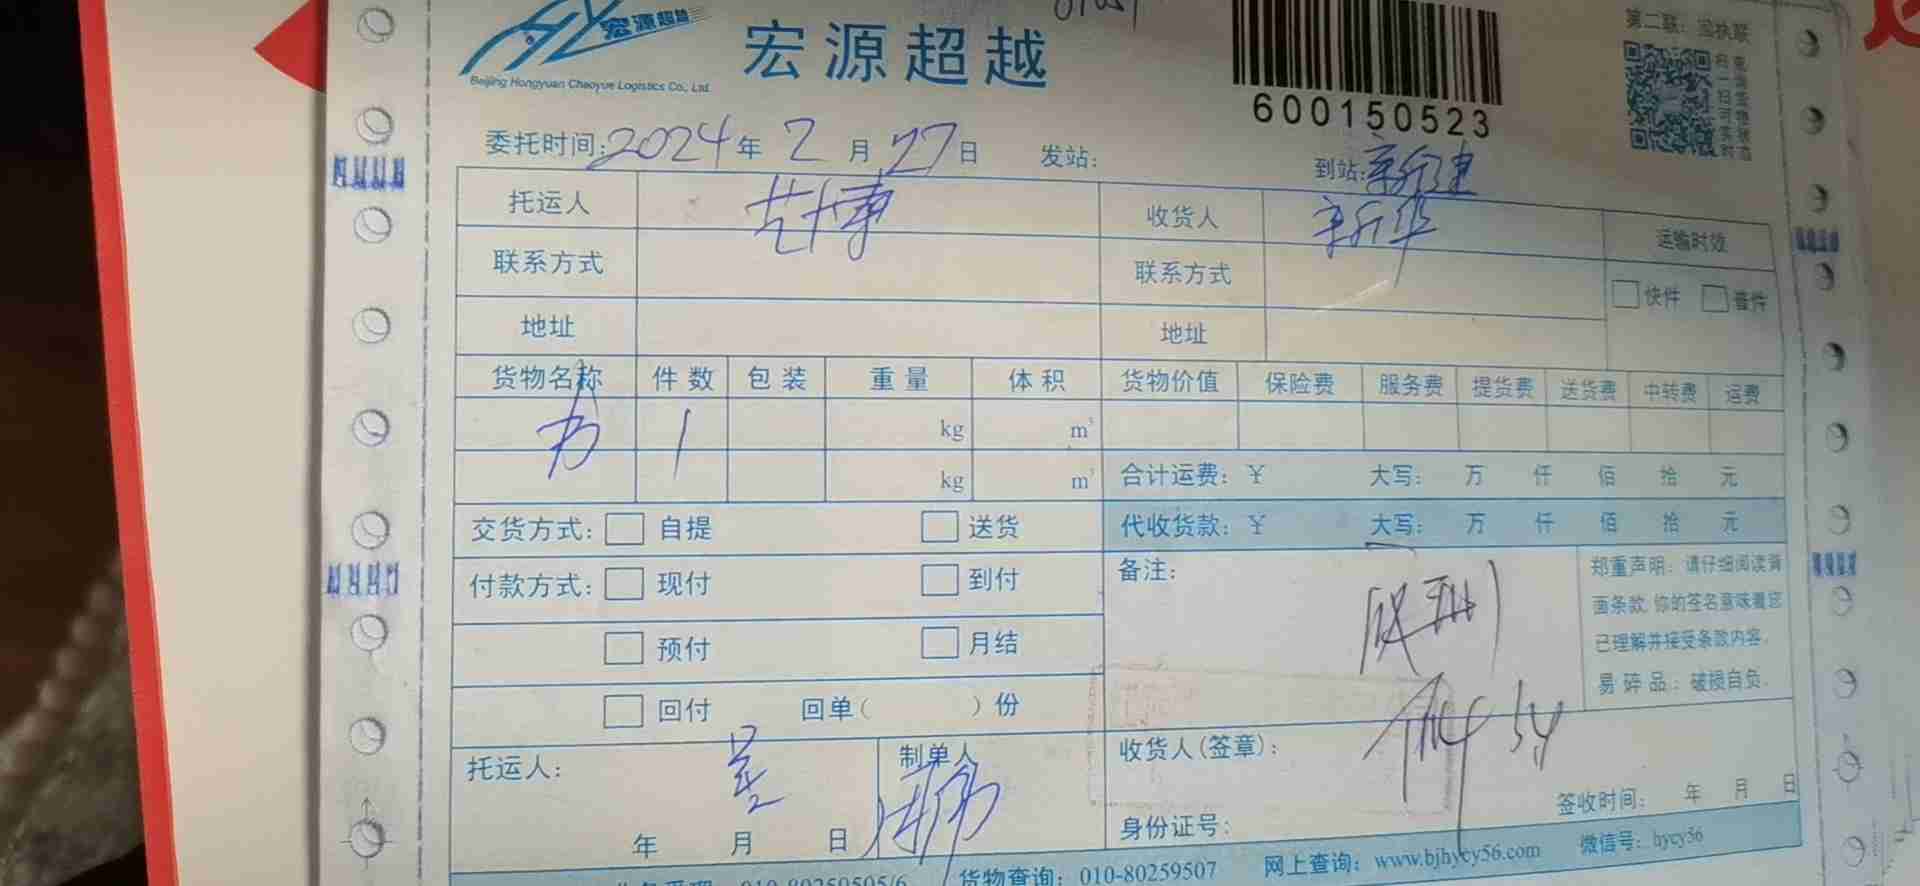 宏源超越
Beijing Hongyuan Chaoyue Logistics Co., Ltd.
宏源超越
600150523
第二联：回执联
委托时间：2024年2月27日 发站： 到站：
托运人 收货人 运输时效
联系方式 联系方式 快件 普件
地址 地址
货物名称 件数 包装 重量 体积 货物价值 保险费 服务费 提货费 送货费 中转费 运费
1 kg m³
kg m³ 合计运费：￥ 大写： 万 仟 佰 拾 元
交货方式： 自提 送货 代收货款：￥ 大写： 万 仟 佰 拾 元
付款方式： 现付 到付 备注：
预付 月结
回付 回单（ ）份
郑重声明：请仔细阅读背
面条款，你的签名意味着您
已理解并接受条款内容。
易碎品：破损自负。
托运人： 制单人 收货人(签章)：
年 月 日 身份证号： 签收时间： 年 月 日
010-80259505/6 货物查询：010-80259507 网上查询：www.bjhycy56.com 微信号：hycy56